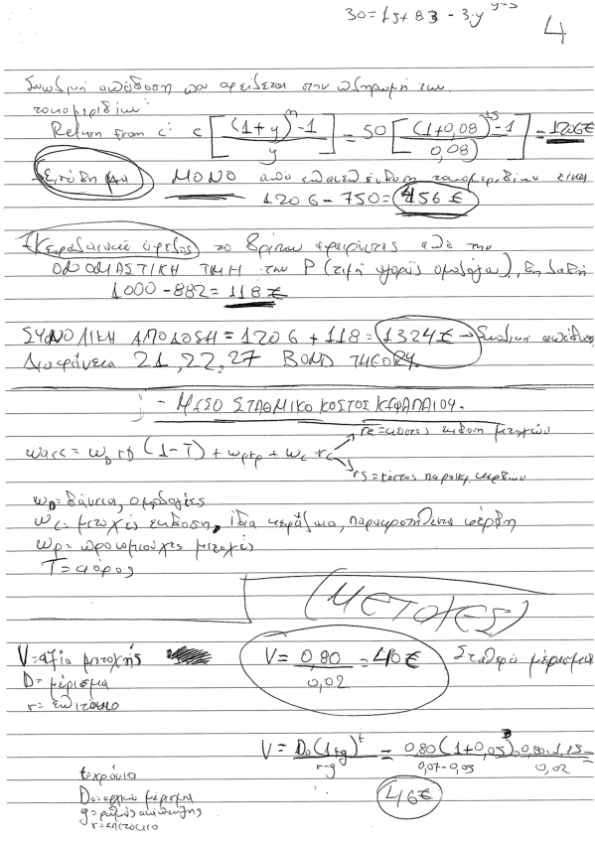 30=15+83-3·y y=5
4
Συνολική απόδοση που οφείλεται στην πληρωμή των
τοκομεριδίων:
Return from c: c [(1+y)^n - 1 / y] = 50 [(1+0,08)^15 - 1 / 0,08] = 1206€
ΜΟΝΟ από επανεπένδυση τοκομεριδίων είναι
1206 - 750 = 456€
Κεφαλαιακό όφελος το βρίσκω αφαιρώντας από την
ΟΝΟΜΑΣΤΙΚΗ ΤΙΜΗ την P (τιμή αγοράς ομολόγου), δηλαδή
1000-882=118€
ΣΥΝΟΛΙΚΗ ΑΠΟΔΟΣΗ = 1206 + 118 = 1324€ → Συνολική απόδοση
Διαφάνεια 21, 22, 27 BOND THEORY.
- ΜΕΣΟ ΣΤΑΘΜΙΚΟ ΚΟΣΤΟΣ ΚΕΦΑΛΑΙΟΥ.
re = κόστος έκδοση μετοχών
wacc = wD rD (1-T) + wp rp + wc rc
rs = κόστος παρακ. κερδών
wD = δάνεια, ομολογίες
wc = μετοχές έκδοση, ίδια κεφάλαια, παρακρατηθέντα κέρδη
wp = προνομιούχες μετοχές
T = φόρος
(ΜΕΤΟΧΕΣ)
V = αξία μετοχής
V = 0,80 / 0,02 = 40€ Σταθερό μέρισμα
D = μέρισμα
r = επιτόκιο
V = D0(1+g)^t / r-g = 0,80(1+0,05)^3 / 0,07-0,05 = 0,80·1,15 / 0,02 =
46€
t=χρόνια
D0=αρχικό μέρισμα
g=ρυθμός ανάπτυξης
r=επιτόκιο